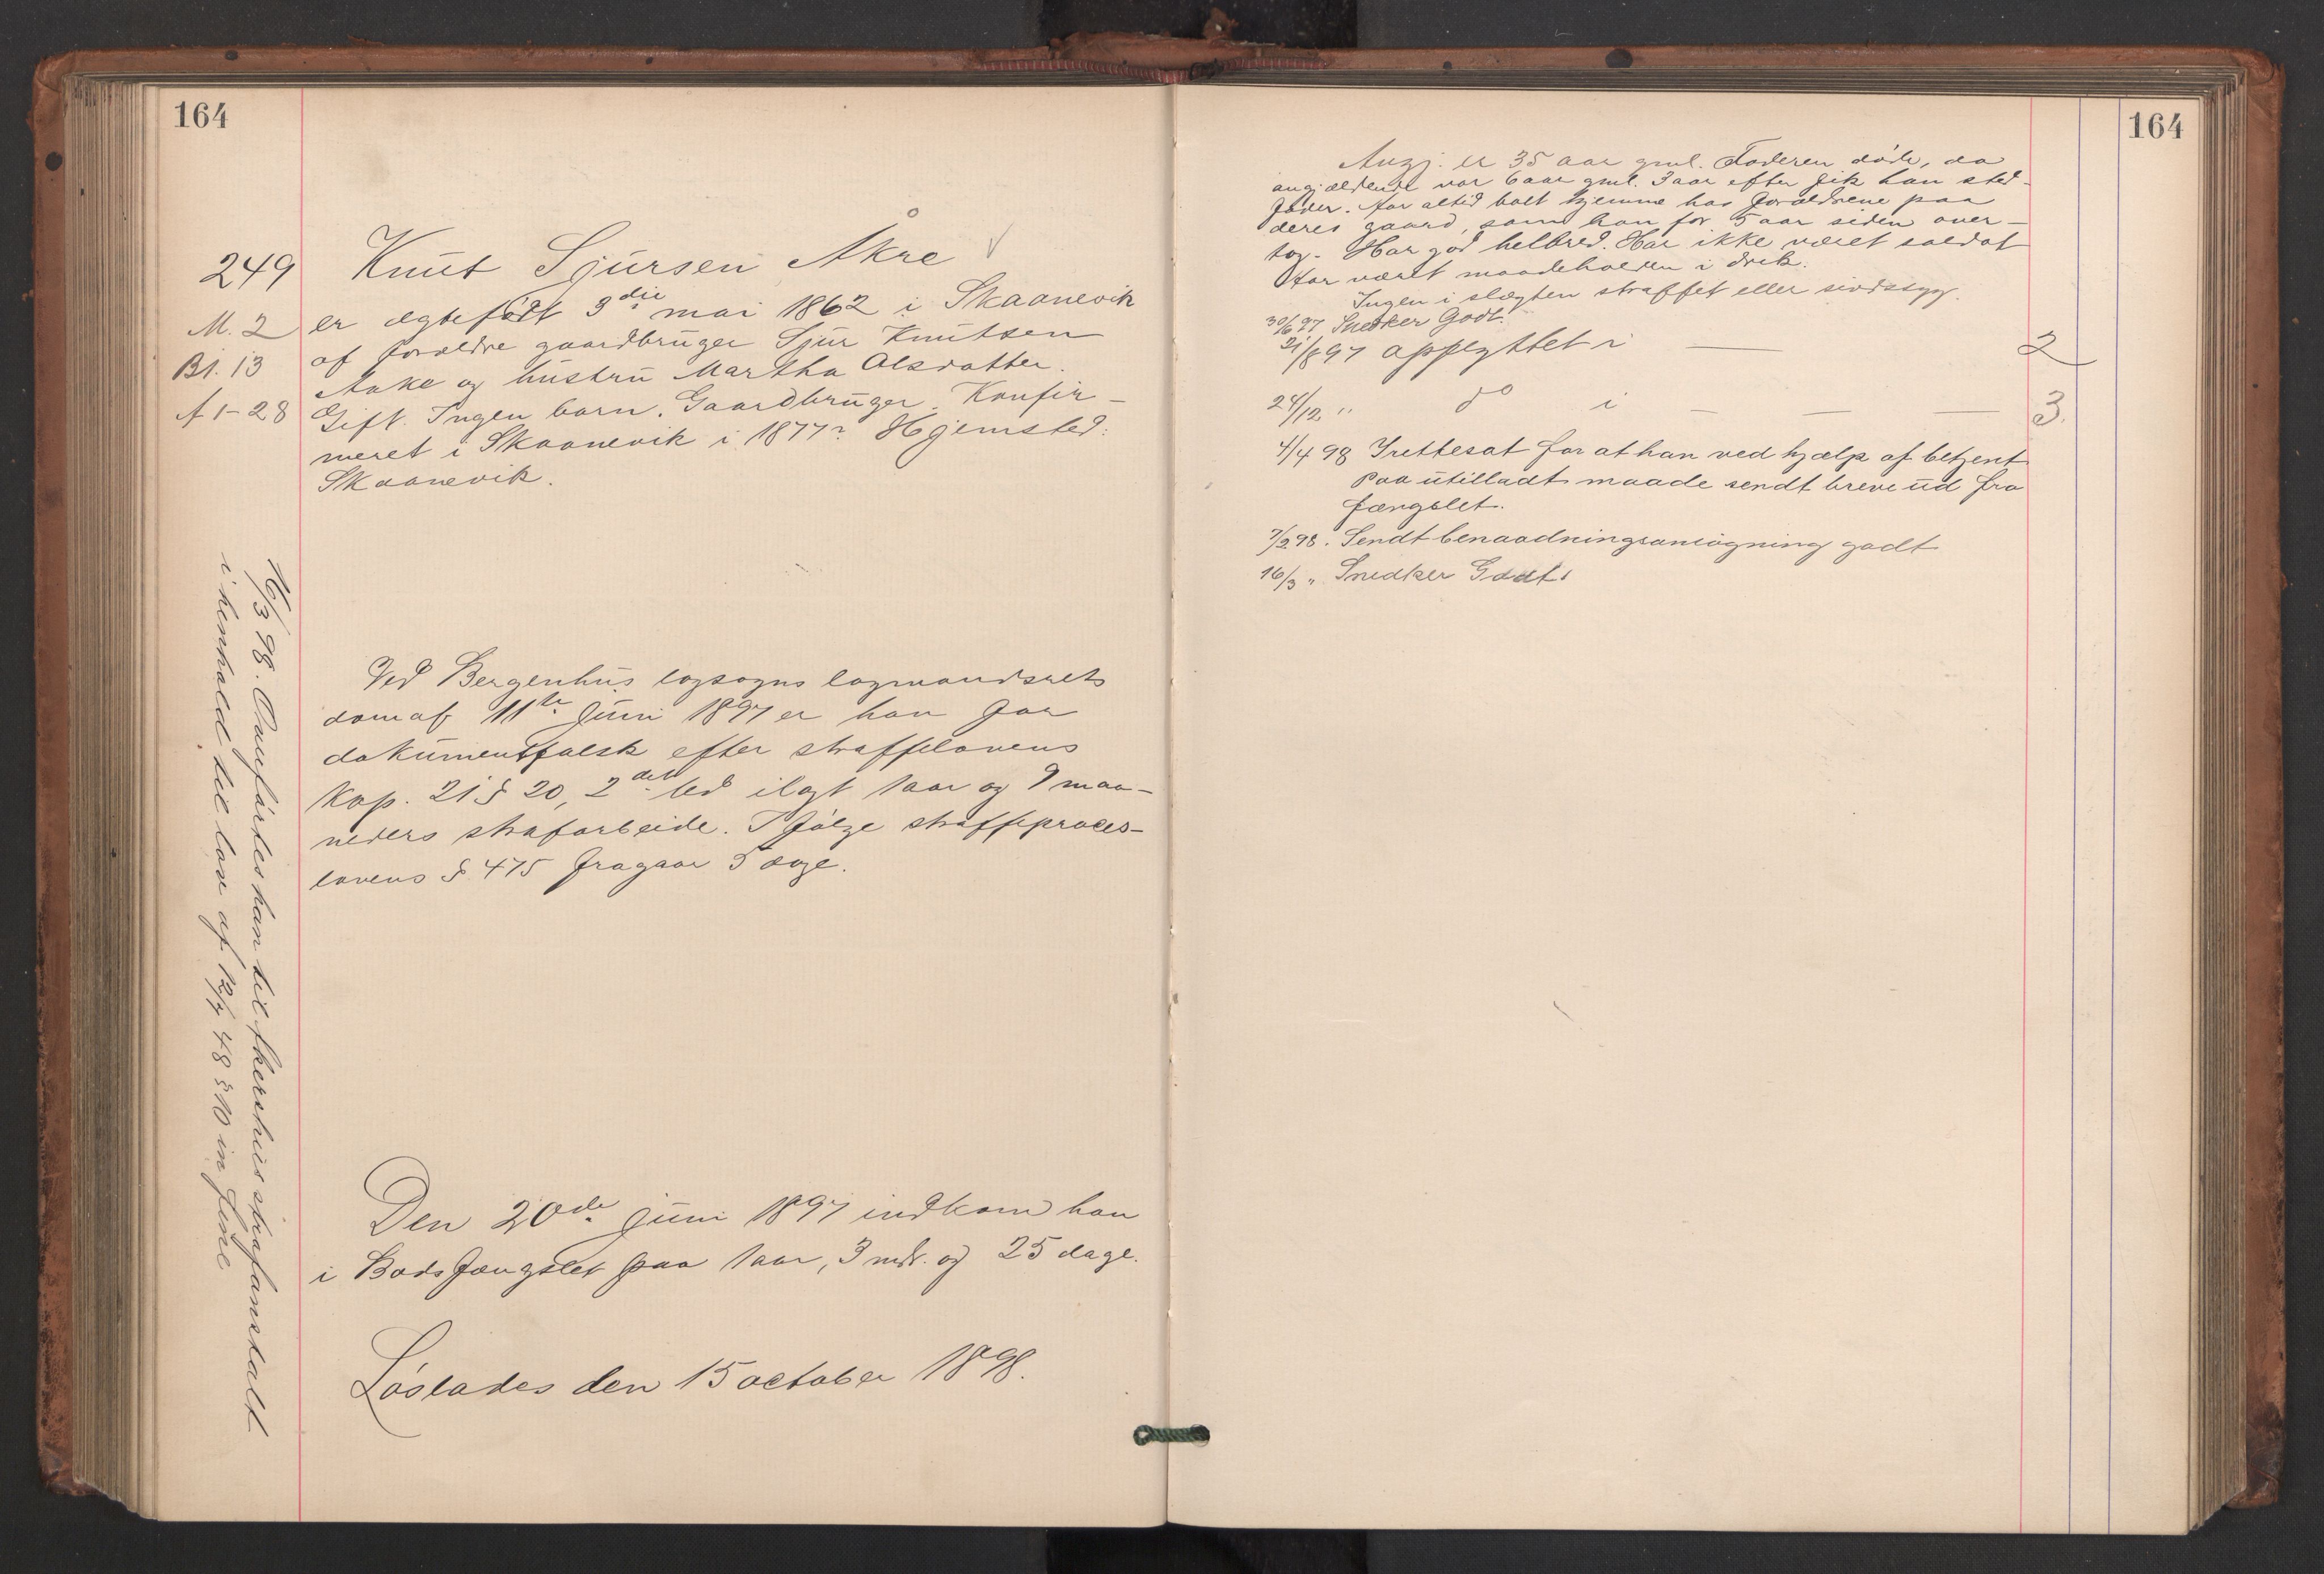 164
249 Knut Sjursen Åkre
M. 2 er ægtefødt 3die mai 1862 i Skaanevik
Bl. 13 af forældre gaardbruger Sjur Knutsen
Aake og hustru Martha Olsdatter.
A 1-28 Gift. Ingen barn. Gaardbruger. Konfir-
meret i Skaanevik i 1877? Hjemsted:
Skaanevik.
Ved Bergenhus lagsogns lagmandsrets
dom af 11te juni 1897 er han for
dokumentfalsk efter straffelovens
Kap. 21 § 20, 2det led ilagt 1 aar og 9 maa-
neders strafarbeide. Ifølge straffeproces-
lovens § 475 fragaar 5 dage.
Den 20de juni 1897 indkom han
i Bodsfængslet paa 1 aar, 3 mdr. og 25 dage.
Løslades den 15 october 1898.
16/3 98. Overførtes han til Akershus strafanstalt
i henhold til lov af 12/7 48 § 10 in fine
164
Angj. er 35 aar gml. Faderen døde, da
angjældende var 6 aar gml. 3 aar efter fik han sted-
fader. Har altid holt hjemme hos forældrene paa
deres gaard, som han for 5 aar siden over-
tog. Har god helbred. Har ikke været soldat
Har været maadeholden i drik.
Ingen i slægten straffet eller sindssyg.
30/6 97 Snedker Godt.
21/8 97 opflyttet i — 2
24/12 " do i — — — 3.
4/4 98 Irettesat for at han ved hjælp af betjent
paa utilladt maade sendt breve ud fra
fængslet.
7/2 98. Sendt benaadningsansøgning godt
16/3 " Snedker Godt.